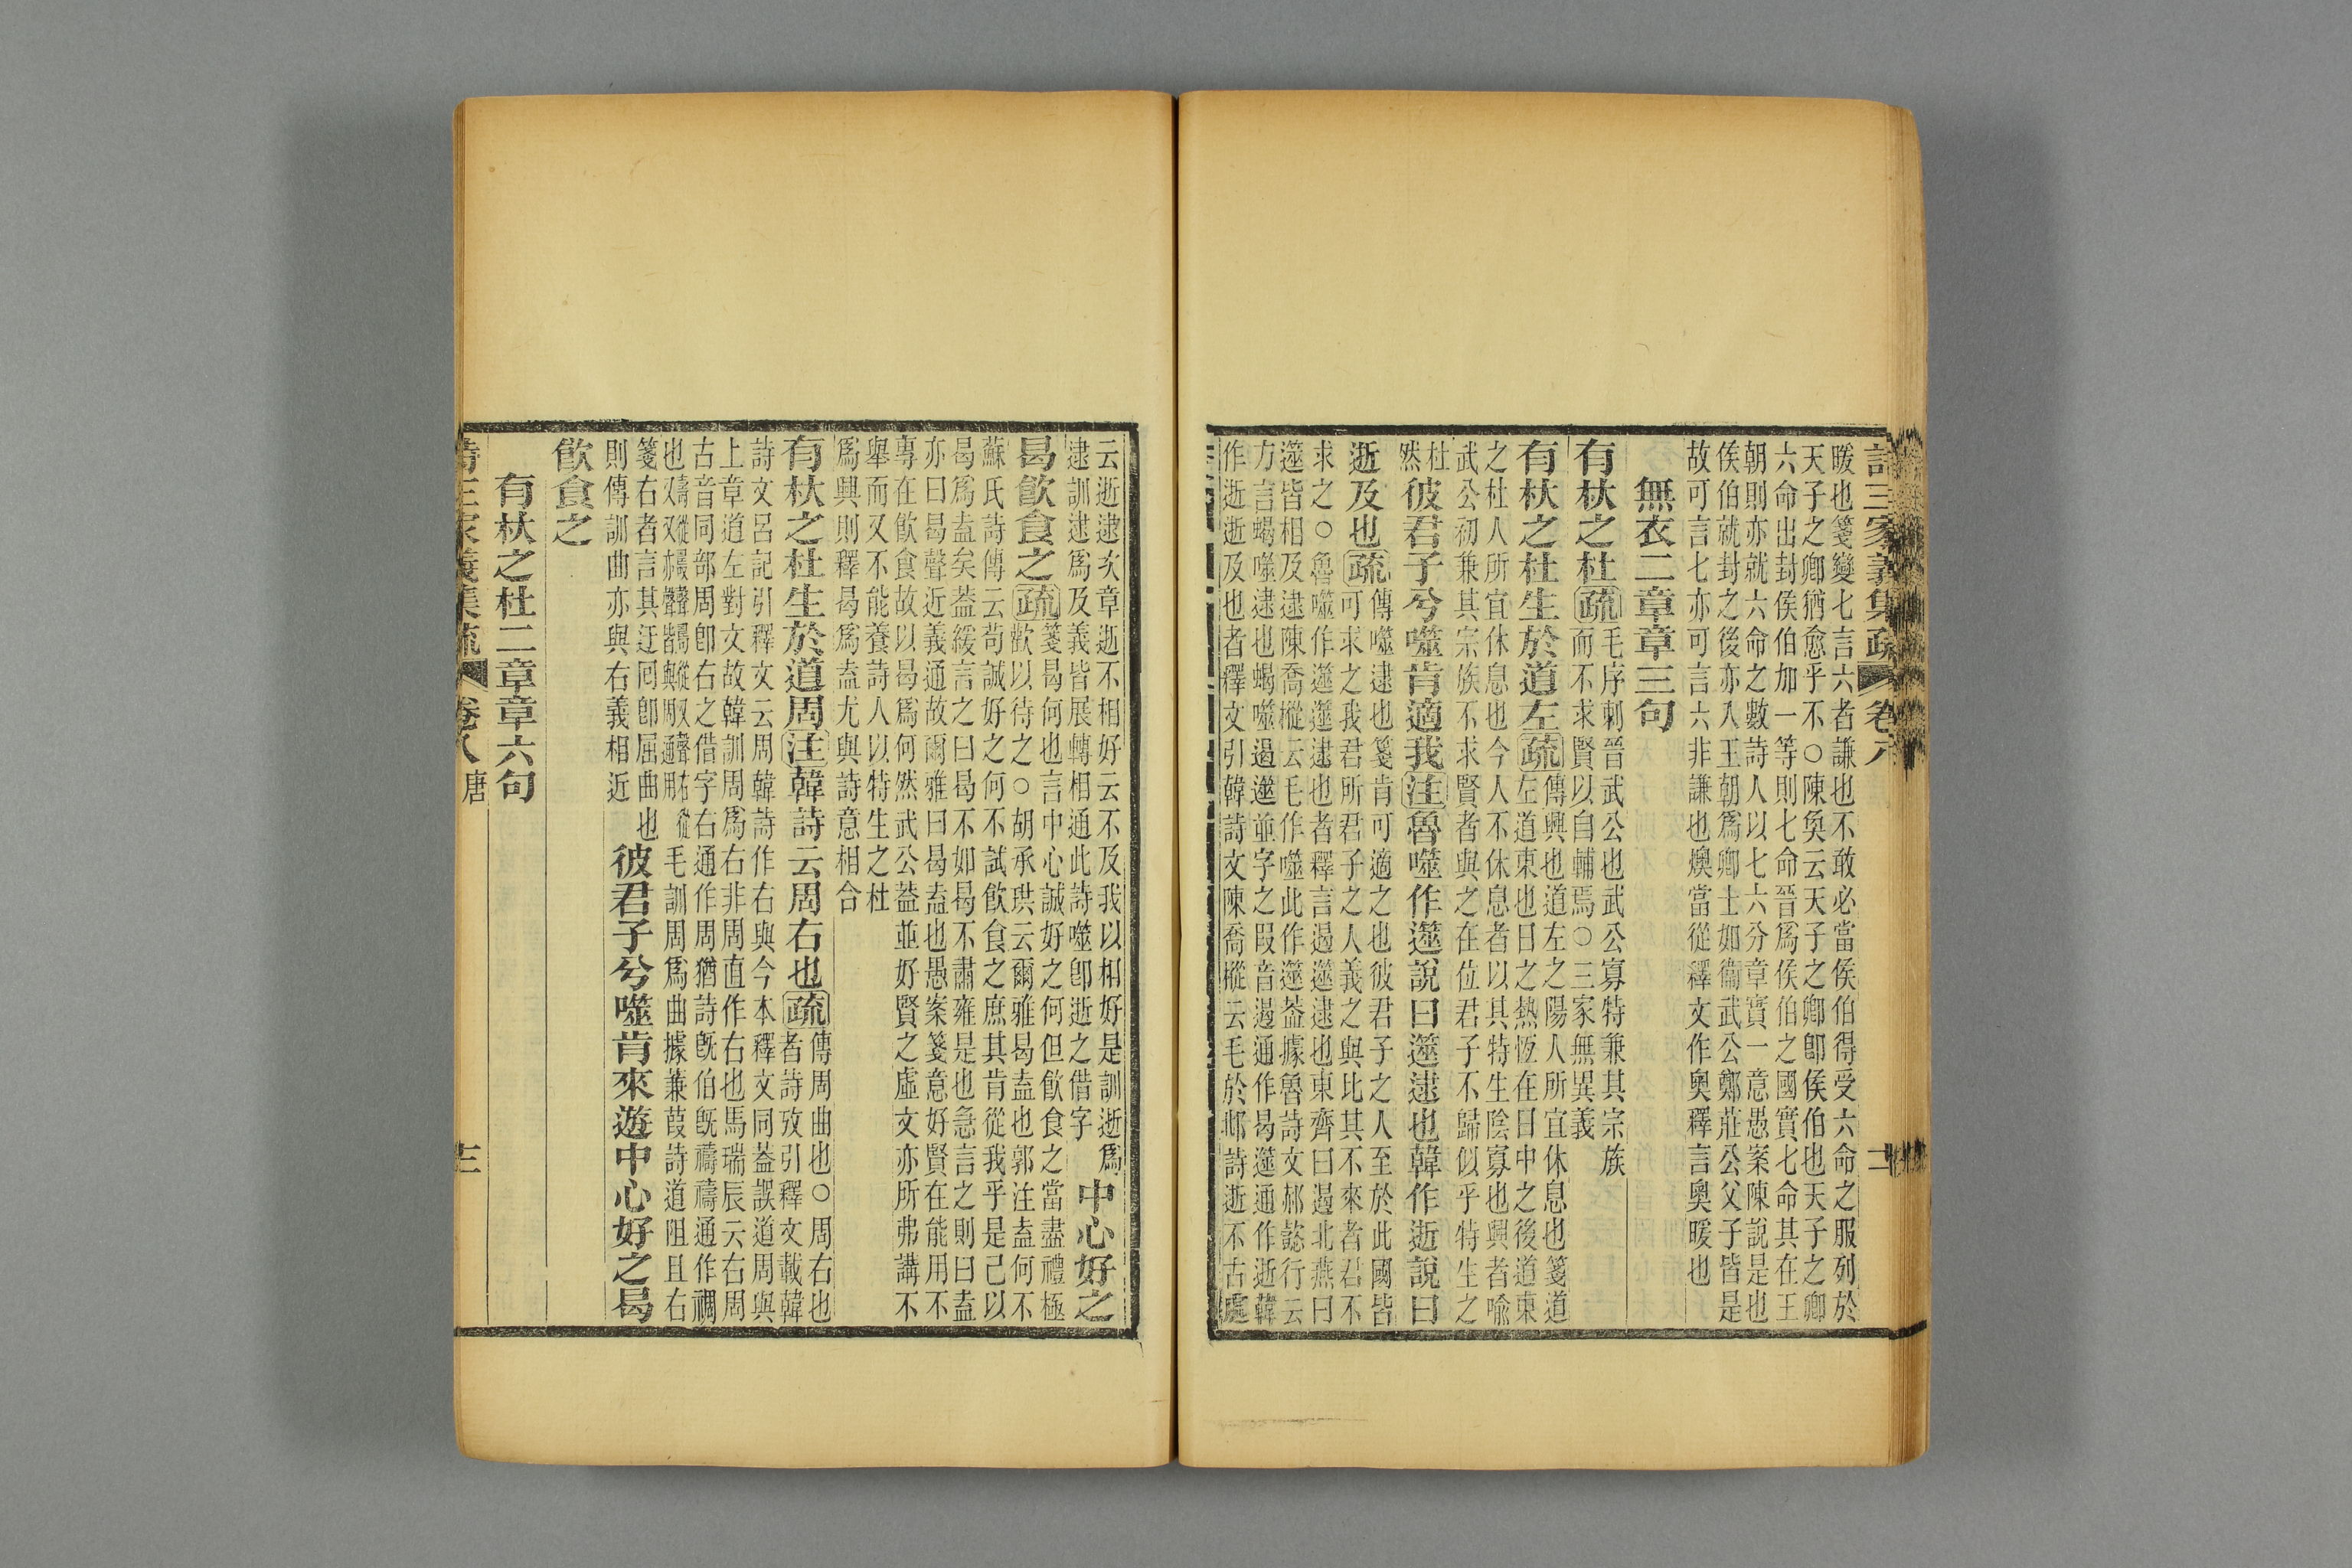 詩三家義集疏 卷八
暖也箋變七言六者謙也不敢必當侯伯得受六命之服列於
天子之卿猶愈乎不○陳奐云天子之卿卽侯伯也天子之卿
六命出封侯伯加一等則七命晉爲侯伯之國實七命其在王
朝則亦就六命之數詩人以七六分章實一意愚案陳說是也
侯伯就封之後亦入王朝爲卿士如衞武公鄭莊公父子皆是
故可言七亦可言六非謙也燠當從釋文作奥釋言奥暖也
無衣二章章三句
有杕之杜疏毛序刺晉武公也武公寡特兼其宗族
而不求賢以自輔焉○三家無異義
有杕之杜生於道左疏傳興也道左之陽人所宜休息也箋道
左道東也日之熱恆在日中之後道東
之杜人所宜休息也今人不休息者以其特生陰寡也興者喻
武公初兼其宗族不求賢者與之在位君子不歸似乎特生之
杜
然彼君子兮噬肯適我注魯噬作遾說曰遾逮也韓作逝說曰
逝及也疏傳噬逮也箋肯可適之也彼君子之人至於此國皆
可求之我君所君子之人義之與比其不來者君不
求之○魯噬作遾遾逮也者釋言遏遾逮也東齊曰遏北燕曰
遾皆相及逮陳喬樅云毛作噬此作遾葢據魯詩文郝懿行云
方言蝎噬逮也蝎噬遏遾並字之叚音遏通作曷遾通作逝韓
作逝逝及也者釋文引韓詩文陳喬樅云毛於邶詩逝不古處
云逝逮次章逝不相好云不及我以相好是訓逝爲
逮訓逮爲及義皆展轉相通此詩噬卽逝之借字中心好之
曷飮食之疏箋曷何也言中心誠好之何但飮食之當盡禮極
歡以待之○胡承珙云爾雅曷盍也郭注盍何不
蘇氏詩傳云苟誠好之何不試飮食之庶其肯從我乎是己以
曷爲盍矣葢緩言之曰曷不如曷不肅雍是也急言之則曰盍
亦曰曷聲近義通故爾雅曰曷盍也愚案箋意好賢在能用不
專在飮食故以曷爲何然武公葢並好賢之虛文亦所弗講不
舉而又不能養詩人以特生之杜
爲興則釋曷爲盍尤與詩意相合
有杕之杜生於道周注韓詩云周右也疏傳周曲也○周右也
者詩攷引釋文載韓
詩文呂記引釋文云周韓詩作右與今本釋文同葢誤道周與
上章道左對文故韓訓周爲右非周直作右也馬瑞辰云右周
古音同部周卽右之借字右通作周猶詩旣伯旣禱禱通作禂
毛訓周爲曲據蒹葭詩道阻且右
箋右者言其迂回卽屈曲也
則傳訓曲亦與右義相近彼君子兮噬肯來遊中心好之曷
飮食之
有杕之杜二章章六句
詩三家義集疏 卷八 唐